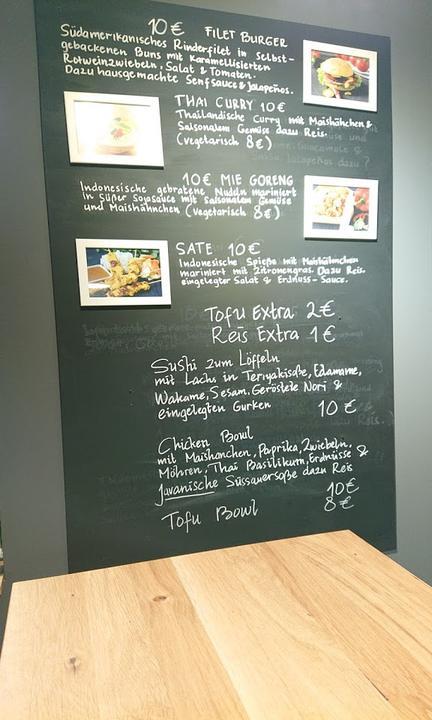 10€ FILET BURGER
Südamerikanisches Rinderfilet in Selbst-
gebackenen Buns mit Karamellisierten
Rotweinzwiebeln, Salat & Tomaten.
Dazu hausgemachte Senfsauce & Jalapeños.
THAI CURRY 10€
Thailändische Curry mit Maishähnchen &
Saisonalem Gemüse dazu Reis.
(vegetarisch 8€)
10€ MIE GORENG
Indonesische gebratene Nudeln mariniert
in Süßer Soyasauce mit saisonalem Gemüse
und Maishähnchen (vegetarisch 8€)
SATE 10€
Indonesische Spieße mit Maishähnchen
mariniert mit Zitronengras. Dazu Reis.
eingelegter Salat & Erdnuss-Sauce.
Tofu Extra 2€
Reis Extra 1€
Sushi zum Löffeln
mit Lachs in Teriyakisoße, Edamame,
Wakame, Sesam, Geröstete Nori &
eingelegten Gurken 10€
Chicken Bowl
mit Maishanchen, Paprika, Zwiebeln,
Möhren, Thai Basilikum, Erdnüsse &
Javanische Süssauersoße dazu Reis
10€
Tofu Bowl 8€